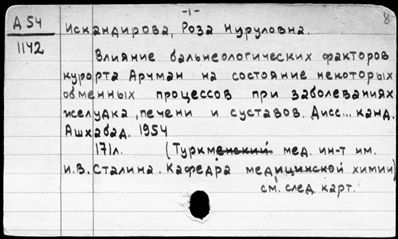 -1-
8
Д 54
1142
Искандирова, Роза Нуруловна.
Влияние бальнеологических факторов
курорта Арчман на состояние некоторых
обменных процессов при заболеваниях
желудка, печени и суставов. Дисс... канд.
Ашхабад. 1954
171л. (Туркменский мед. ин-т им.
И.В. Сталина. Кафедра медицинской химии)
см. след. карт.